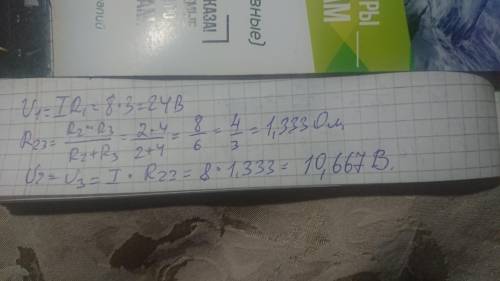 КАЗА!
вные)
РЫ
АМ
U₁ = IR₁ = 8·3 = 24 В
R₂₃ = R₂·R₃ / R₂+R₃ = 2·4 / 2+4 = 8/6 = 4/3 = 1,333 Ом
U₂ = U₃ = I · R₂₃ = 8 · 1,333 = 10,667 В.